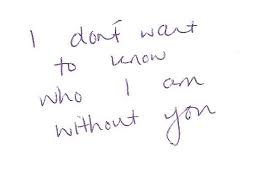 I don't want
to know
who I am
without you